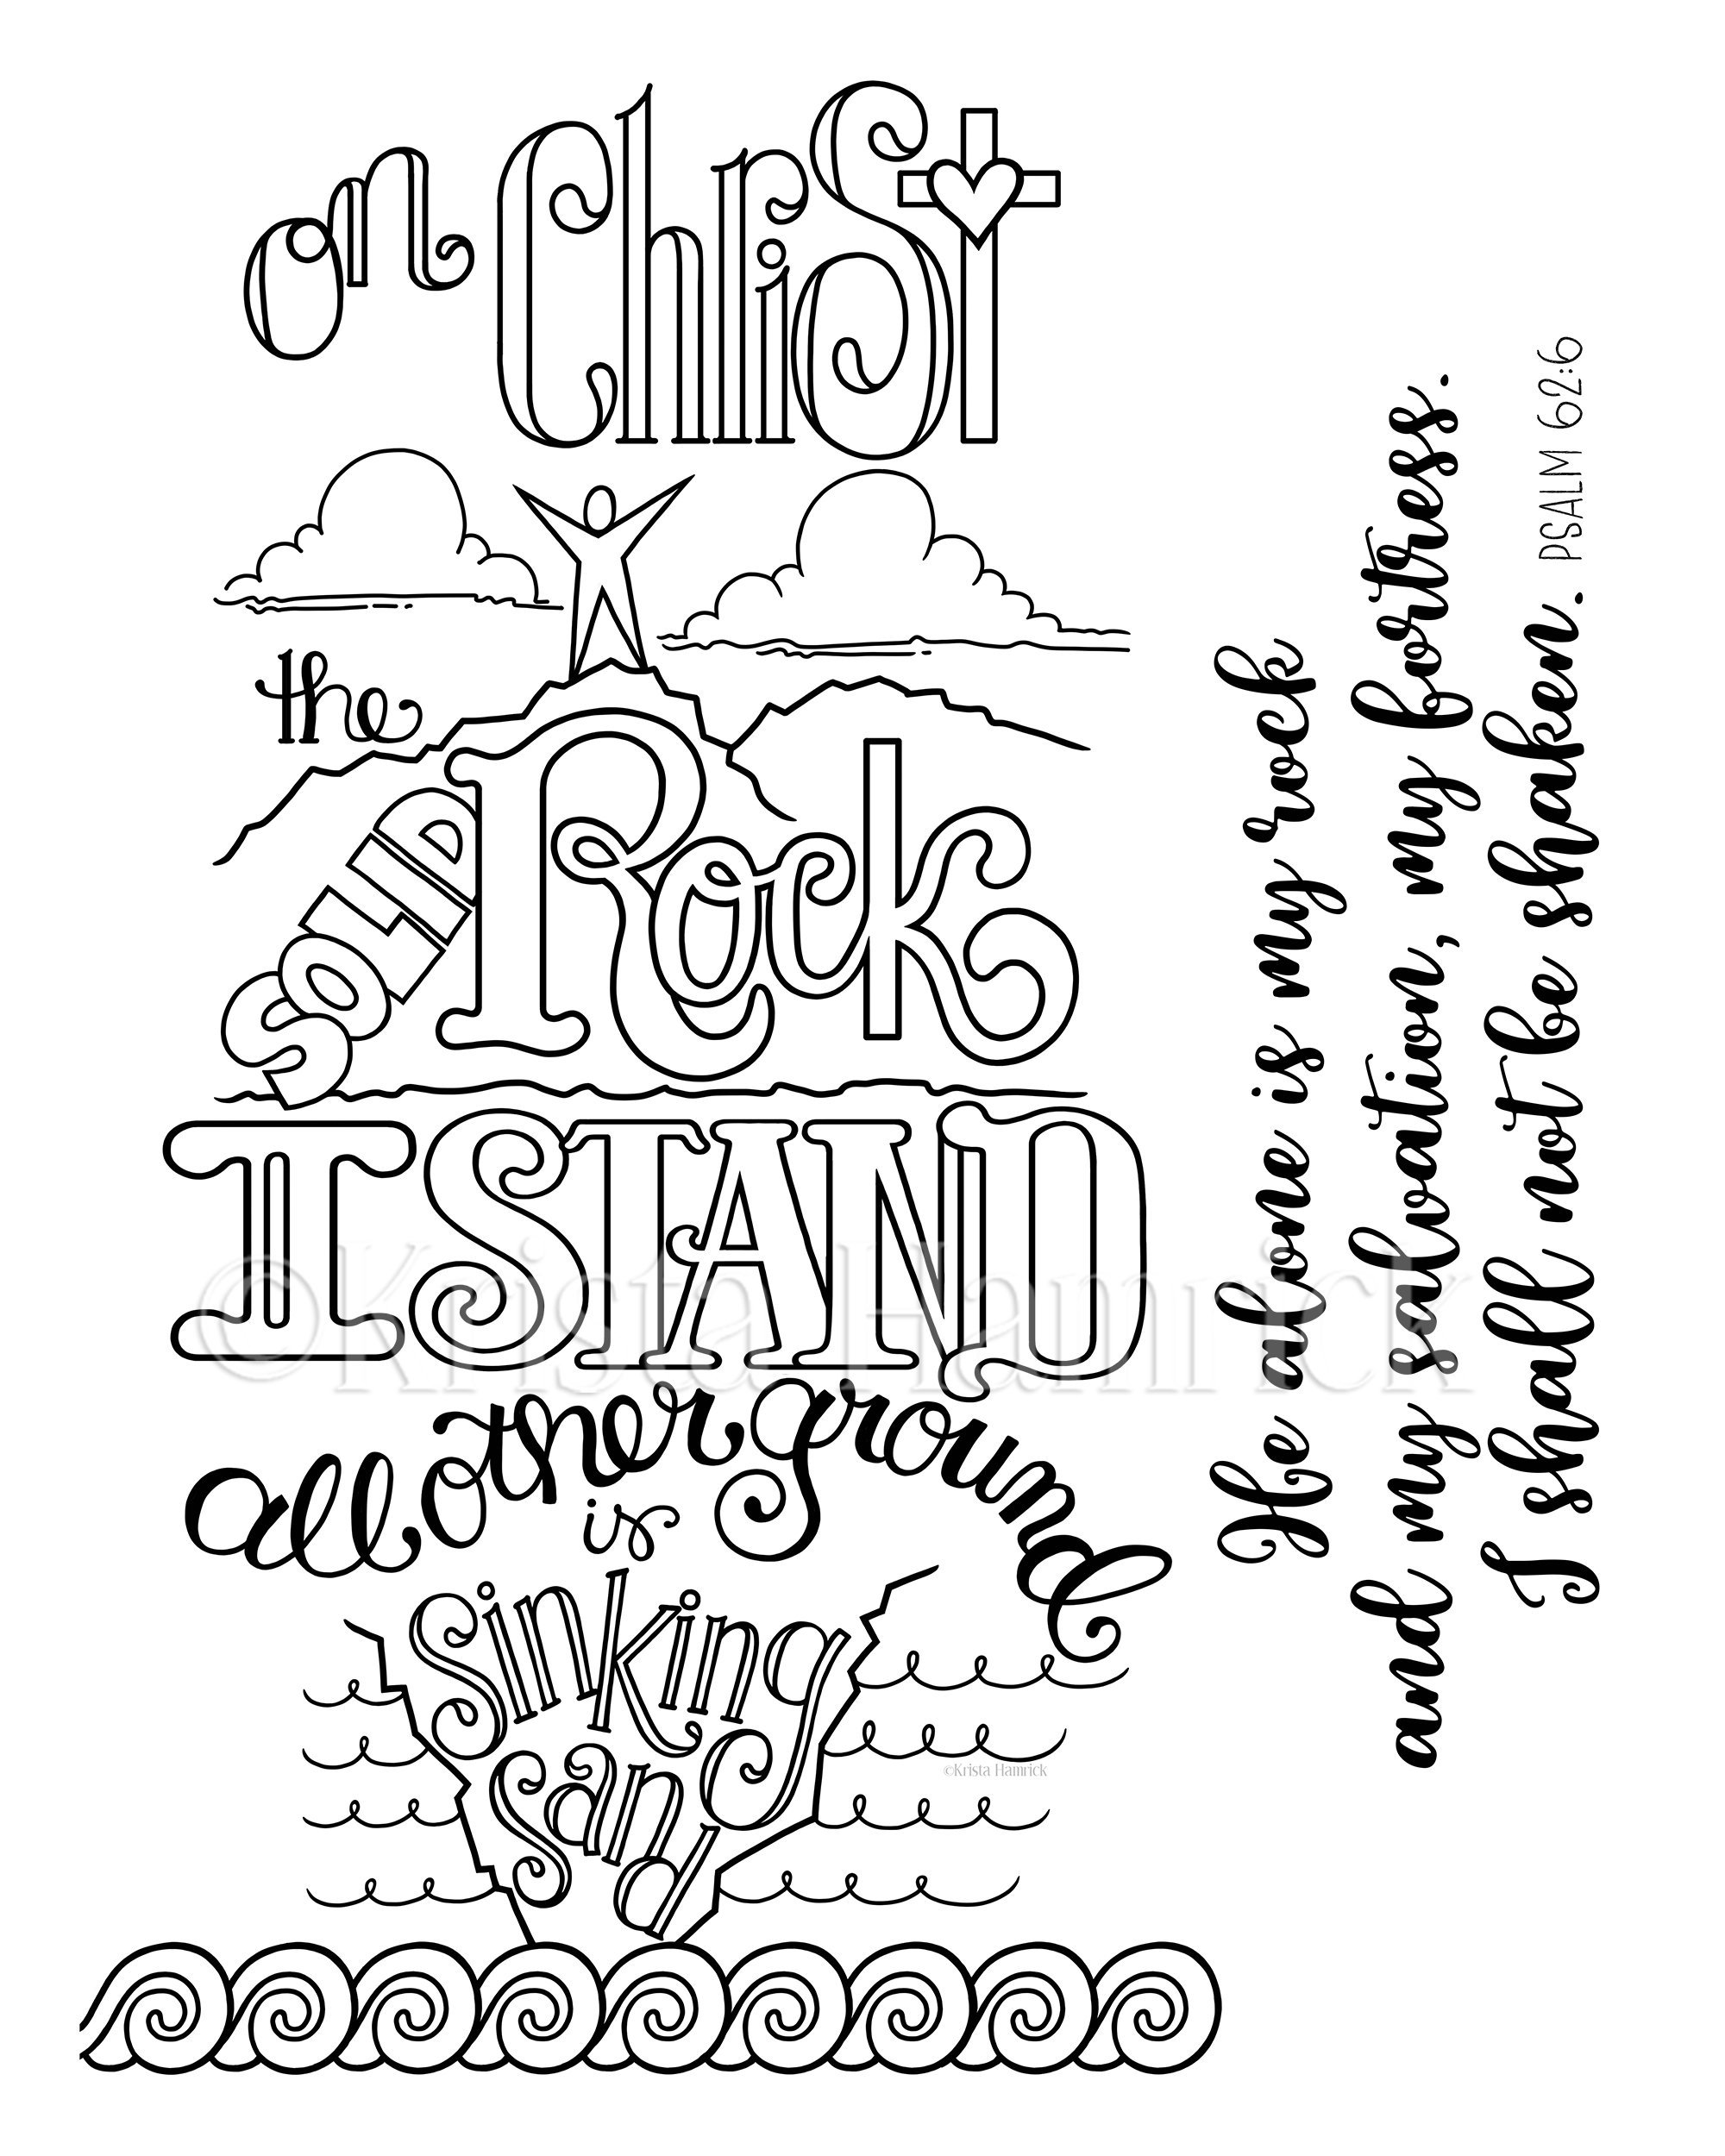 on Christ
the
SOLID
Rock
I STAND
all other ground
is
sinking
sand
©Krista Hamrick
©Krista Hamrick
He alone is my rock
and my salvation, my fortress.
I shall not be shaken. PSALM 62:6